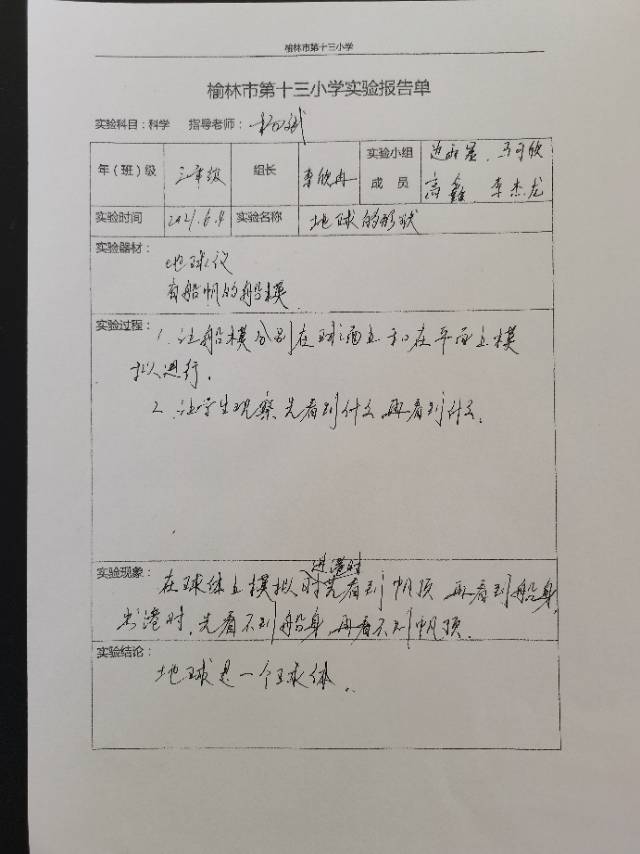 榆林市第十三小学
榆林市第十三小学实验报告单
实验科目：科学 指导老师：
年（班）级 三年级 组长 李欣冉 实验小组成员 马可欣 高鑫 李杰龙
实验时间 2021.6.8 实验名称 地球的形状
实验器材：
地球仪
有船帆的船模
实验过程：
1. 让船模分别在球面上和在平面上模
拟进行。
2. 让学生观察先看到什么再看到什么。
实验现象：
在球体上模拟进港时先看到帆顶 再看到船身
出港时，先看不到船身 再看不到帆顶。
实验结论：
地球是一个球体。